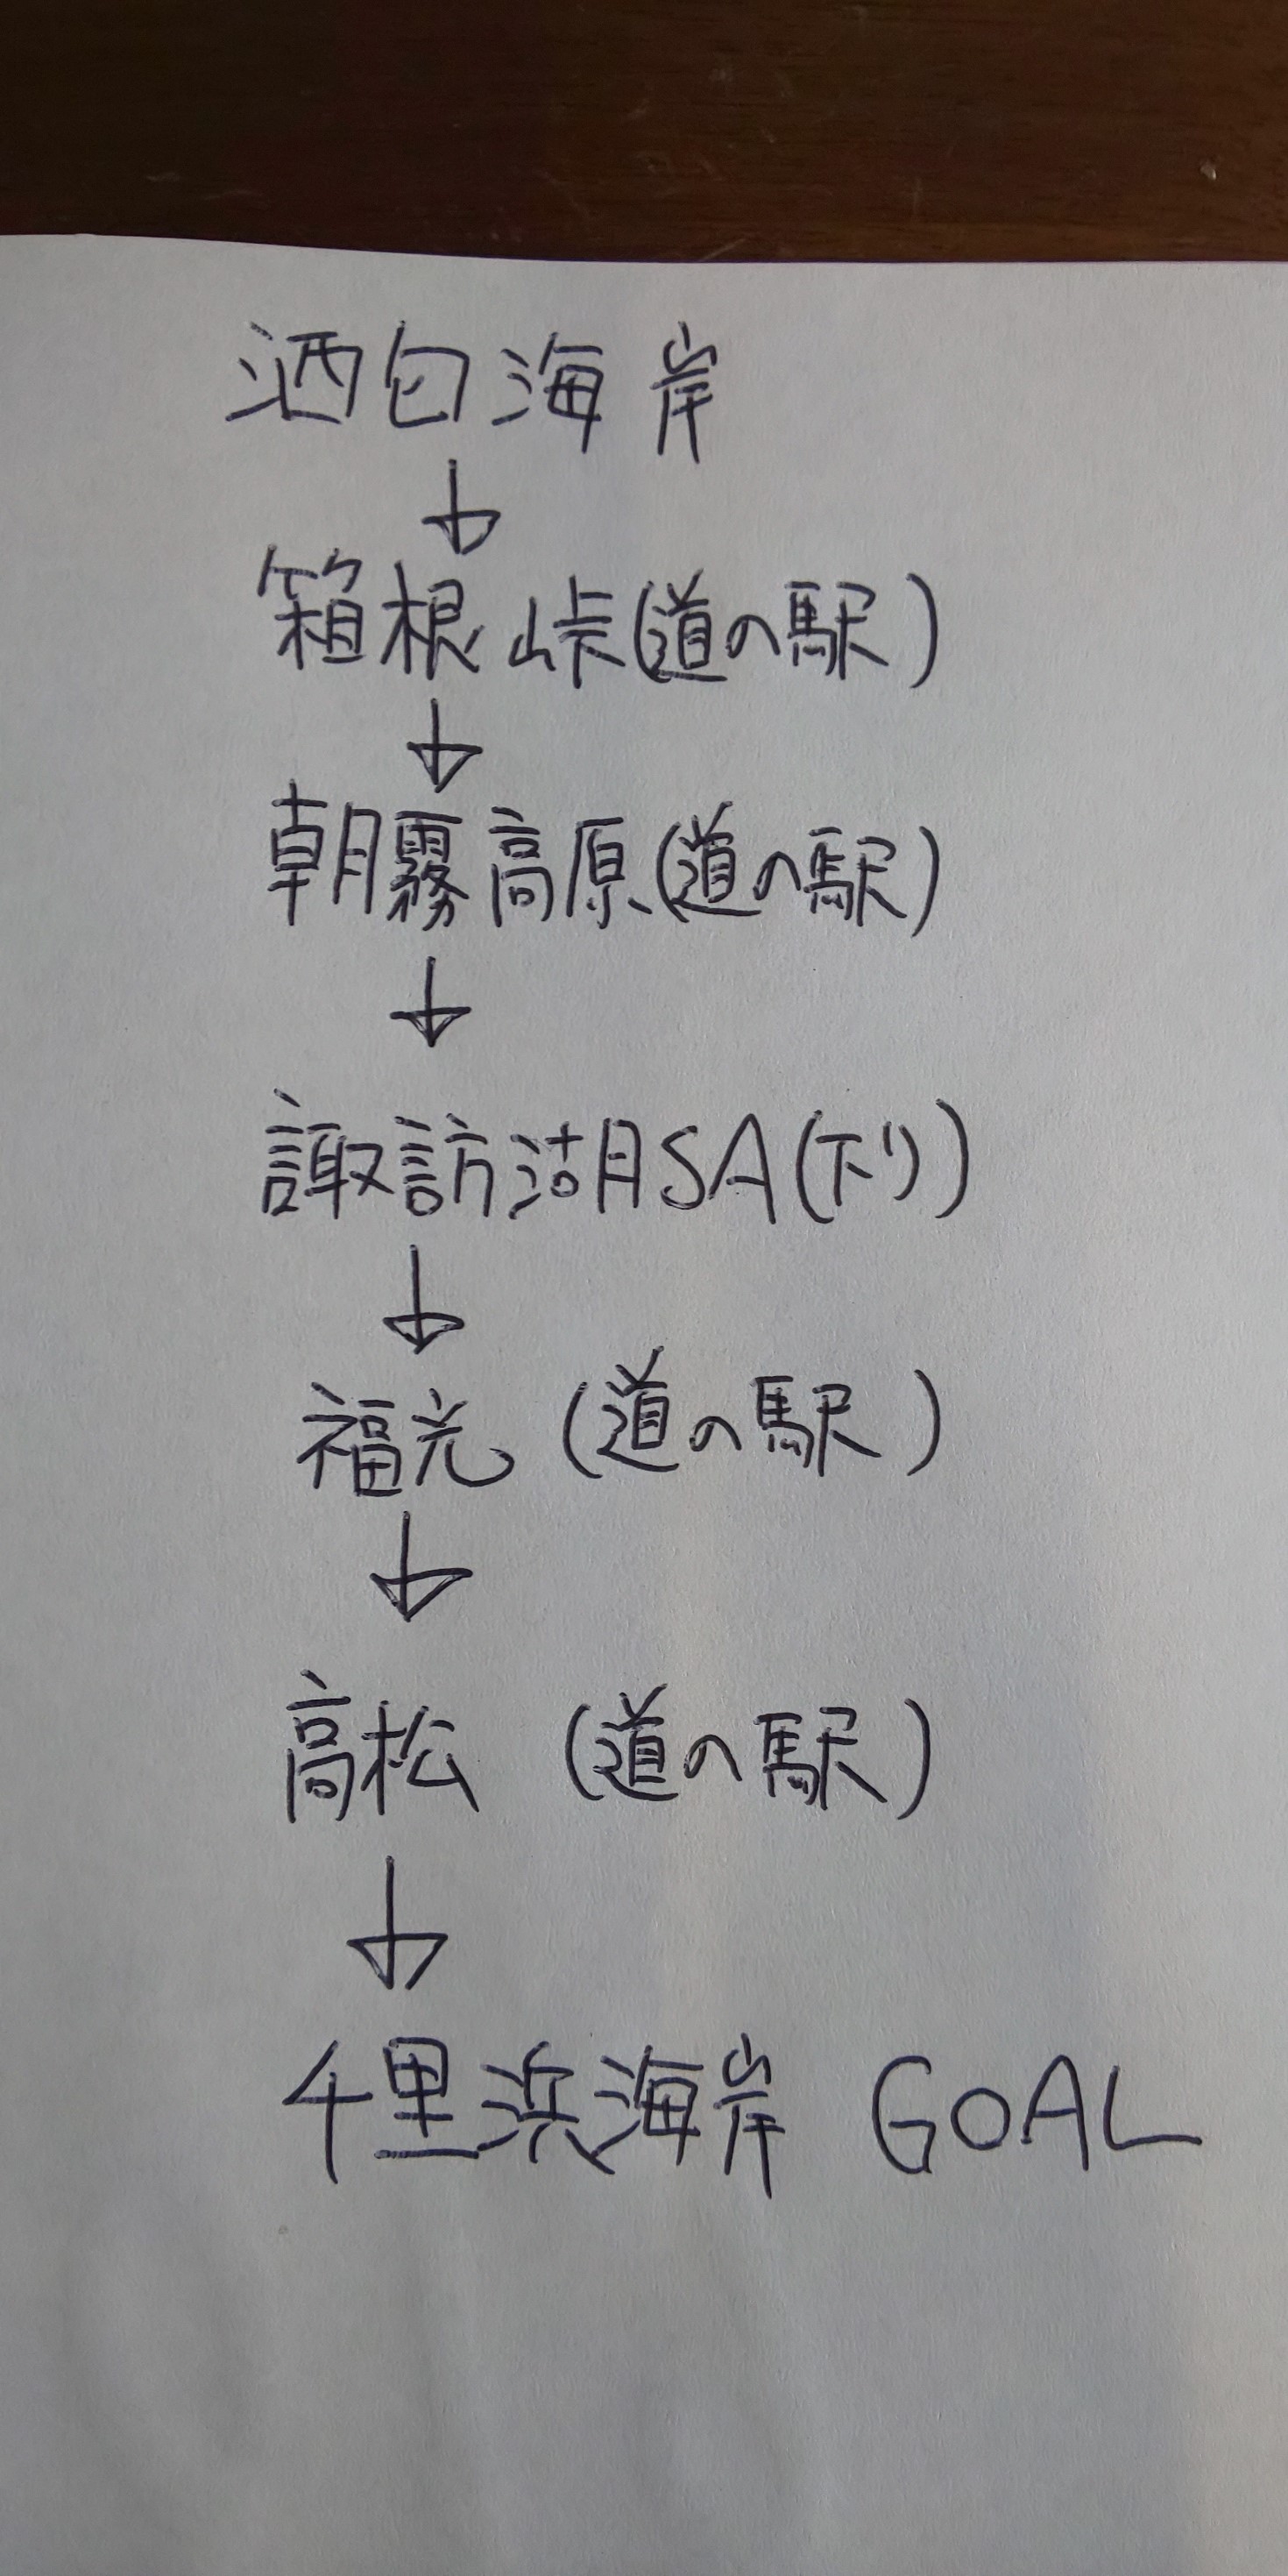 酒匂海岸
↓
箱根峠(道の駅)
↓
朝霧高原(道の駅)
↓
諏訪湖SA(下り)
↓
福光(道の駅)
↓
高松(道の駅)
↓
千里浜海岸 GOAL